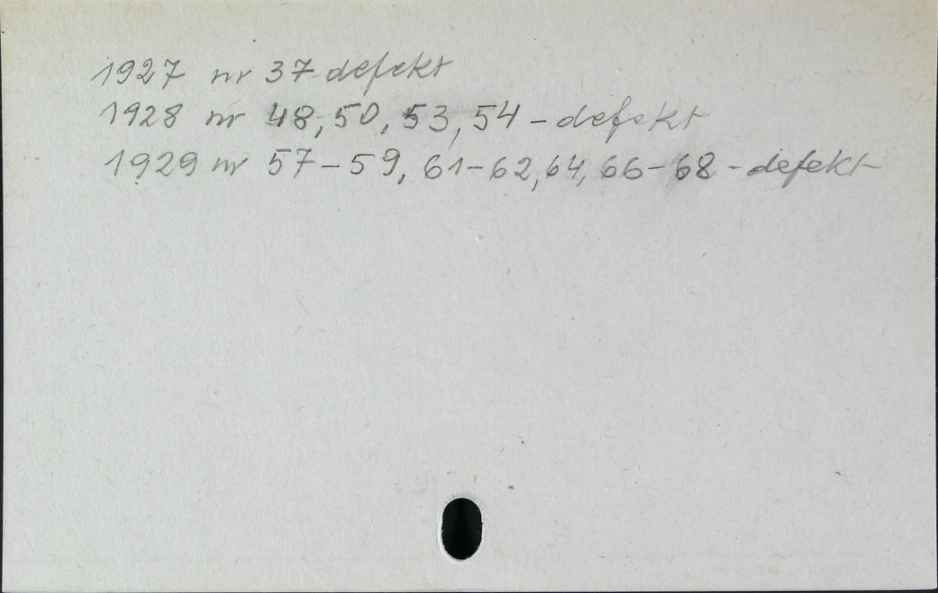 1927 nr 37 defekt
1928 nr 48, 50, 53, 54 - defekt
1929 nr 57-59, 61-62, 64, 66-68 - defekt